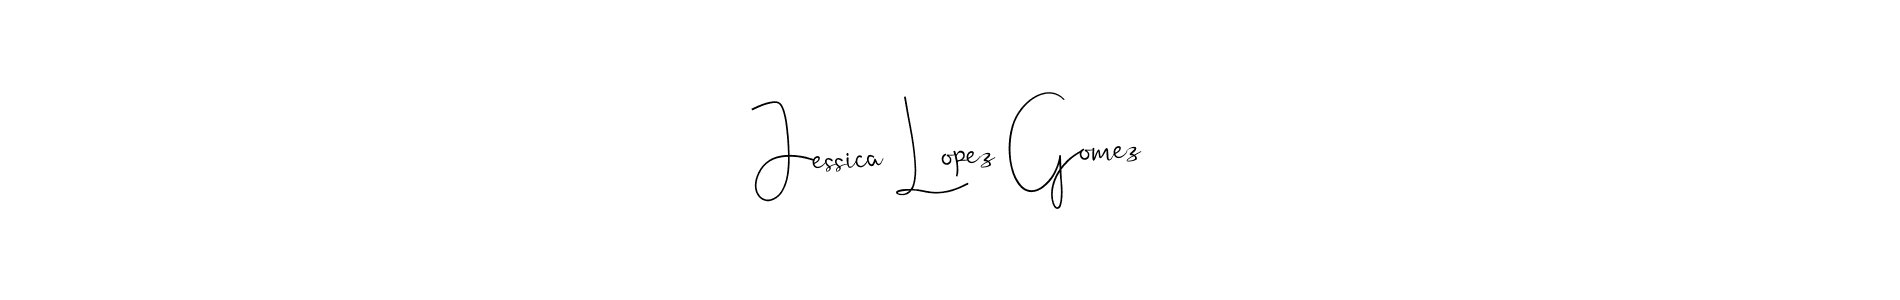 Jessica Lopez Gomez